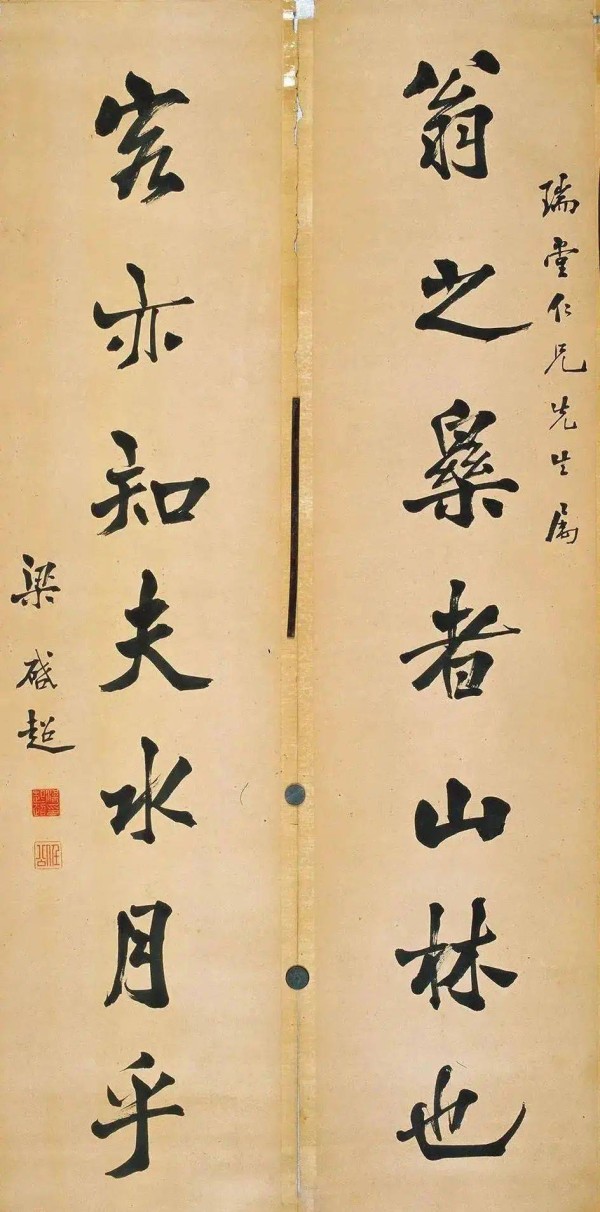 瑞堂仁兄先生属
翁之樂者山林也
客亦知夫水月乎
梁啓超
任公